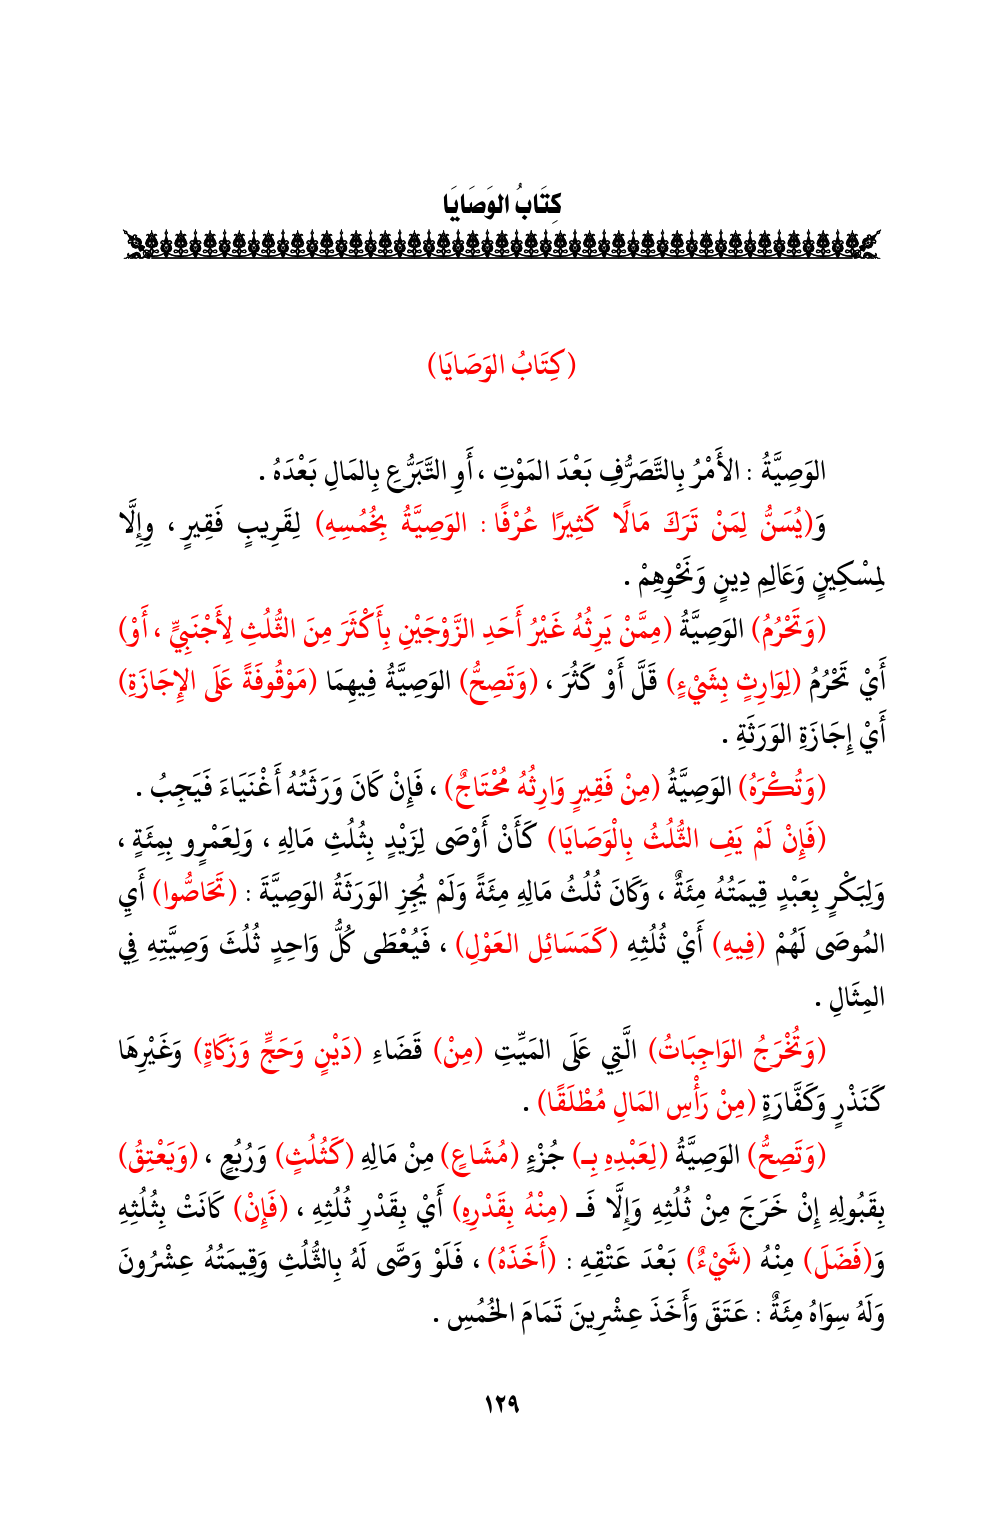 كِتَابُ الوَصَايَا
(كِتَابُ الوَصَايَا)
الوَصِيَّةُ : الأَمْرُ بِالتَّصَرُّفِ بَعْدَ المَوْتِ ، أَوِ التَّبَرُّعِ بِالمَالِ بَعْدَهُ .
وَ(يُسَنُّ لِمَنْ تَرَكَ مَالًا كَثِيرًا عُرْفًا : الوَصِيَّةُ بِخُمُسِهِ) لِقَرِيبٍ فَقِيرٍ ، وِإِلَّا
لِمسْكِينٍ وَعَالِمِ دِينٍ وَنَحْوِهِمْ .
(وَتَحْرُمُ) الوَصِيَّةُ (مِمَّنْ يَرِثُهُ غَيْرُ أَحَدِ الزَّوْجَيْنِ بِأَكْثَرَ مِنَ الثُّلُثِ لِأَجْنَبِيٍّ ، أَوْ)
أَيْ تَحْرُمُ (لِوَارِثٍ بِشَيْءٍ) قَلَّ أَوْ كَثُرَ ، (وَتَصِحُّ) الوَصِيَّةُ فِيهِمَا (مَوْقُوفَةً عَلَى الإِجَازَةِ)
أَيْ إِجَازَةِ الوَرَثَةِ .
(وَتُكْرَهُ) الوَصِيَّةُ (مِنْ فَقِيرٍ وَارِثُهُ مُحْتَاجٌ) ، فَإِنْ كَانَ وَرَثَتُهُ أَغْنَيَاءَ فَيَجِبُ .
(فَإِنْ لَمْ يَفِ الثُّلُثُ بِالْوَصَايَا) كَأَنْ أَوْصَى لِزَيْدٍ بِثُلُثِ مَالِهِ ، وَلِعَمْرٍو بِمِئَةٍ ،
وَلِبَكْرٍ بِعَبْدٍ قِيمَتُهُ مِئَةٌ ، وَكَانَ ثُلُثُ مَالِهِ مِئَةً وَلَمْ يُجِزِ الوَرَثَةُ الوَصِيَّةَ : (تَحَاصُّوا) أَيِ
المُوصَى لَهُمْ (فِيهِ) أَيْ ثُلُثِهِ (كَمَسَائِلِ العَوْلِ) ، فَيُعْطَى كُلُّ وَاحِدٍ ثُلُثَ وَصِيَّتِهِ فِي
المِثَالِ .
(وَتُخْرَجُ الوَاجِبَاتُ) الَّتِي عَلَى المَيِّتِ (مِنْ) قَضَاءِ (دَيْنٍ وَحَجٍّ وَزَكَاةٍ) وَغَيْرِهَا
كَنَذْرٍ وَكَفَّارَةٍ (مِنْ رَأْسِ المَالِ مُطْلَقًا) .
(وَتَصِحُّ) الوَصِيَّةُ (لِعَبْدِهِ بِـ) جُزْءٍ (مُشَاعٍ) مِنْ مَالِهِ (كَثُلُثٍ) وَرُبُعٍ ، (وَيَعْتِقُ)
بِقَبُولِهِ إِنْ خَرَجَ مِنْ ثُلُثِهِ وَإِلَّا فَـ (مِنْهُ بِقَدْرِهِ) أَيْ بِقَدْرِ ثُلُثِهِ ، (فَإِنْ) كَانَتْ بِثُلُثِهِ
وَ(فَضَلَ) مِنْهُ (شَيْءٌ) بَعْدَ عَتْقِهِ : (أَخَذَهُ) ، فَلَوْ وَصَّى لَهُ بِالثُّلُثِ وَقِيمَتُهُ عِشْرُونَ
وَلَهُ سِوَاهُ مِئَةٌ : عَتَقَ وَأَخَذَ عِشْرِينَ تَمَامَ الخُمُسِ .
١٢٩